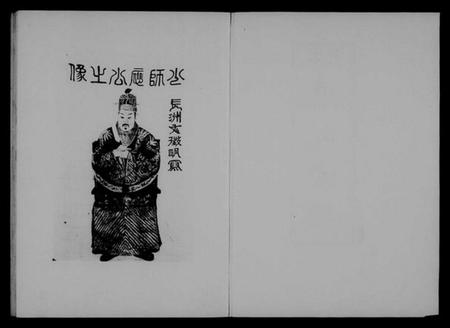 少師應公之像
長洲文徵明寫